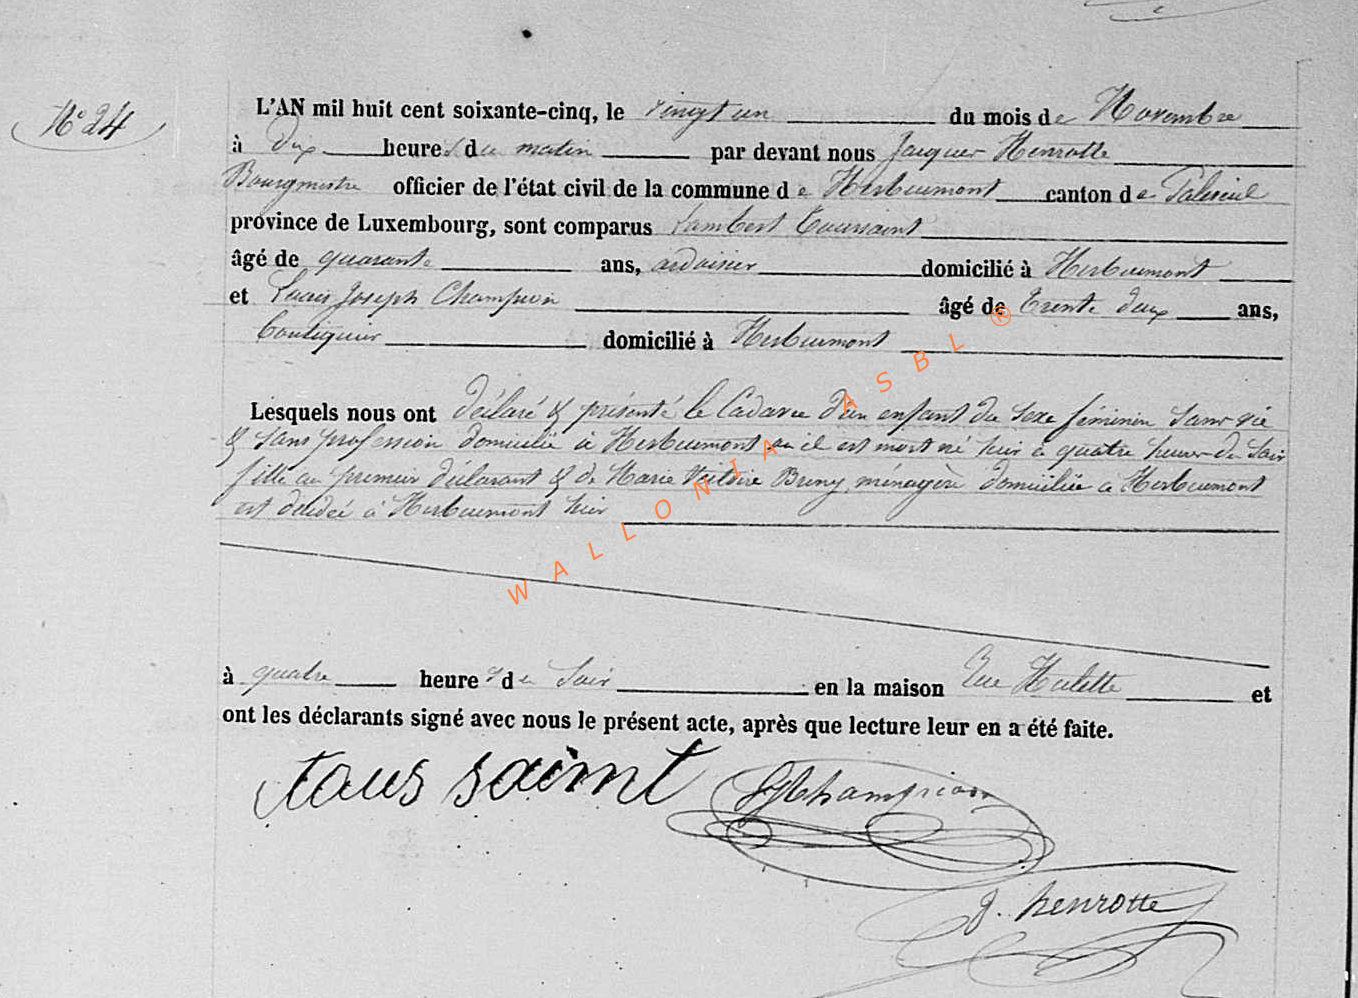 N° 24
L'AN mil huit cent soixante-cinq, le vingt un du mois de Novembre
à Dix heures du matin par devant nous Jacques Henrotte
Bourgmestre officier de l'état civil de la commune de Herbeumont canton de Paliseul
province de Luxembourg, sont comparus Lambert Toussaint
âgé de quarante ans, ardoisier domicilié à Herbeumont
et Louis Joseph Champion âgé de Trente deux ans,
Boutiquier domicilié à Herbeumont
Lesquels nous ont déclaré & présenté le Cadavre d'un enfant du sexe féminin sans vie
& sans profession domiciliée à Herbeumont où il est mort né hier à quatre heures du Soir
fille au premier déclarant & de Marie Victoire Bruny, ménagère domiciliée à Herbeumont
est décédée à Herbeumont hier
à quatre heures du Soir en la maison Rue Hulette et
ont les déclarants signé avec nous le présent acte, après que lecture leur en a été faite.
tous saint LJChampion
J. henrotte
WALLONIA ASBL ®